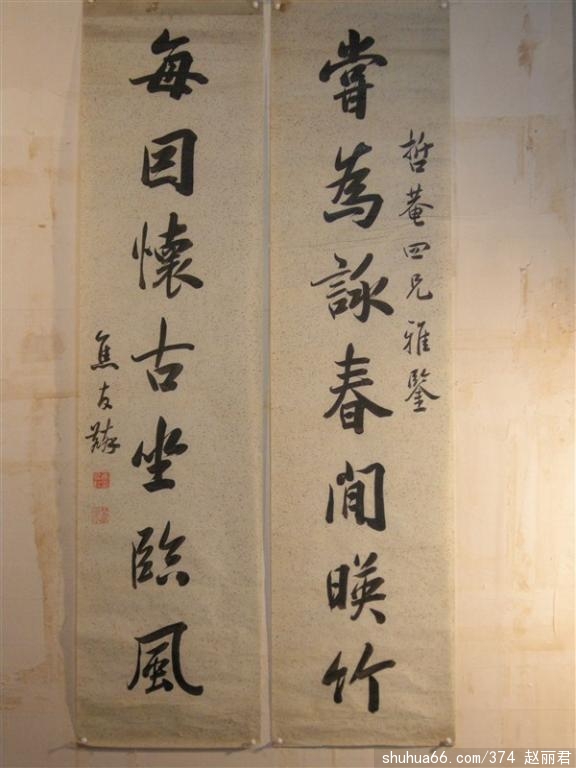 嘗為詠春閒暎竹
哲菴四兄雅鑒
每因懷古坐臨風
焦友麟
shuhua66.com/374 赵丽君